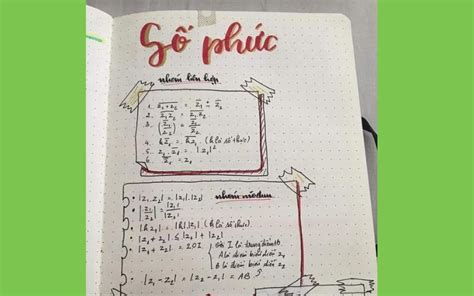 Số phức
nhóm liên hợp
1. \overline{z₁ + z₂} = \overline{z₁} + \overline{z₂}
2. \overline{z₁ z₂} = \overline{z₁} \overline{z₂}
3. \overline{(z₁/z₂)} = \overline{z₁}/\overline{z₂}
4. \overline{k z₁} = k \overline{z₁} (k là số thực)
5. z₁ . \overline{z₁} = |z₁|²
6. = z₁
nhóm môđun
• |z₁.z₂| = |z₁|.|z₂|
• |z₁/z₂| = |z₁|/|z₂|
• |k z₁| = |k|.|z₁| (k là số thực)
• |z₁ + z₂| ≤ |z₁| + |z₂|
• |z₁ + z₂| = 2OI
I là trung điểm AB
A là điểm biểu diễn z₁
B là điểm biểu diễn z₂
• |z₁ - z₂| = |z₂ - z₁| = AB